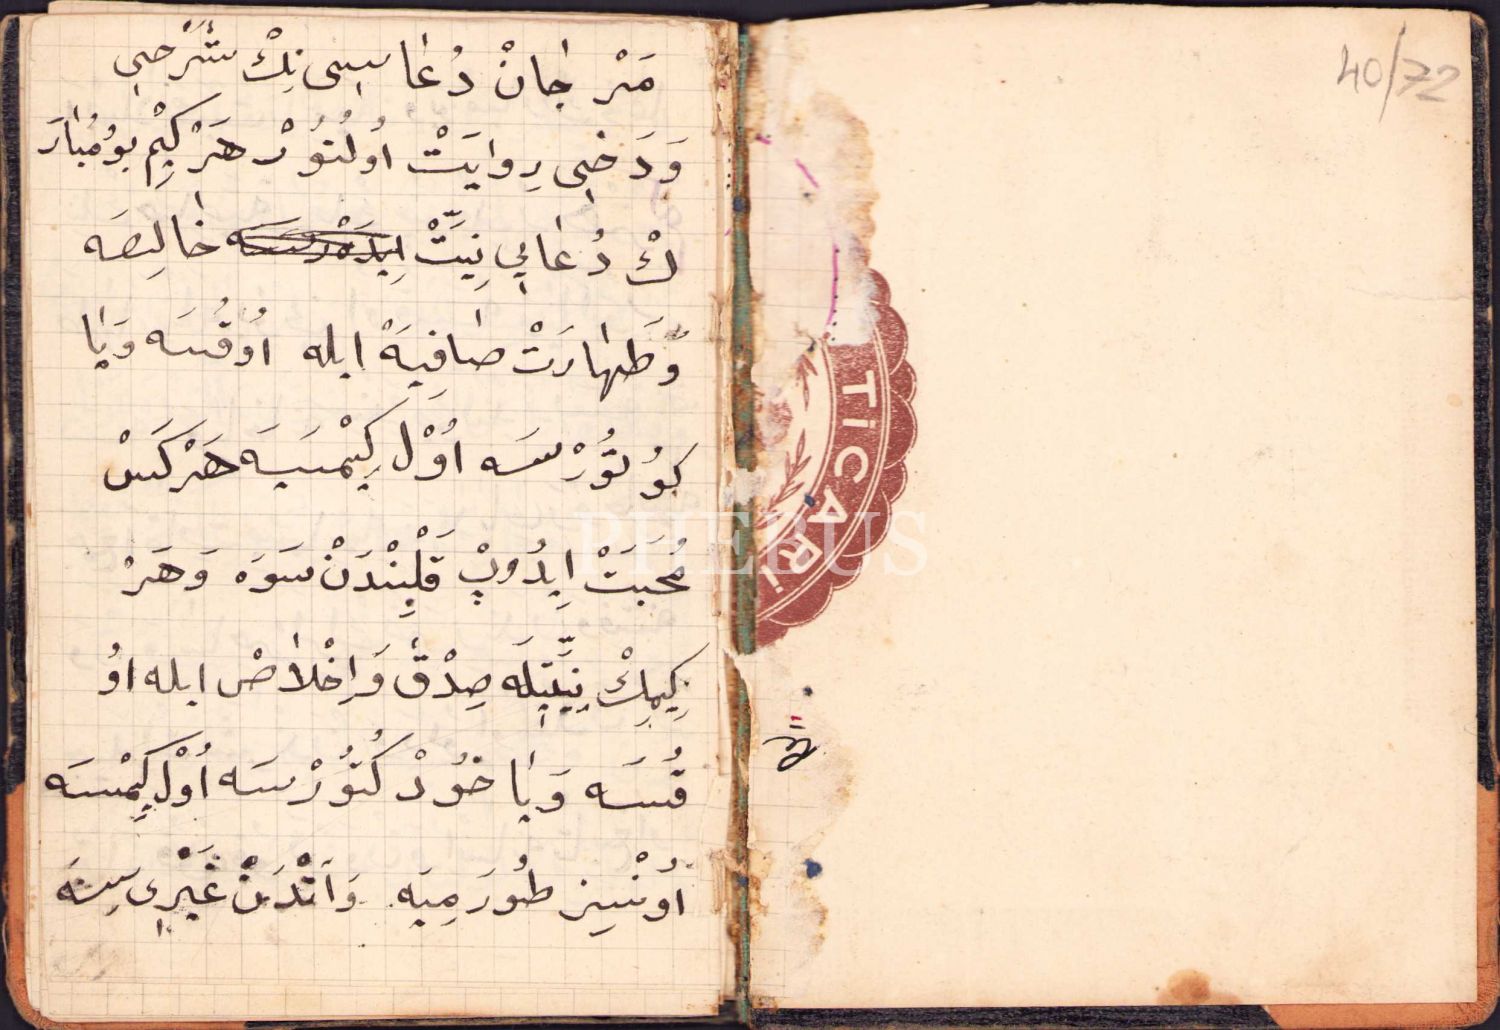 مَرْجَانْ دُعَا سِى نِكْ شَرْحِى
وَدَخِى رِوايَتْ اُولُنُورْ هَرْ كِيْم بُو مُبَارَ
كْ دُعَايِى نِيَّتْ خَالِصَه
وَطَهَارَتْ صَافِيَهْ ايله اُوقُسَه وَيَا
كُوتُورْسَه اُوْلْ كِيْمسَيَه هَرْكَسْ
مُحَبَتْ اِيدُوپْ قَلْبِنْدَنْ سَوَه وَهَرْ
كِيمِكْ نِيَّتِلَه صِدْقْ وَاِخْلَاصْ ايله اوُ
قُسَه وَيَا خُودْ كُتُورْسَه اُوْلْ كِيْمْسَه
اوُنْسِيز طُورَمِيَه وَاَنْدَنْ غَيْرِى سِنَه
40/72
TİCARİ
PHEBUS